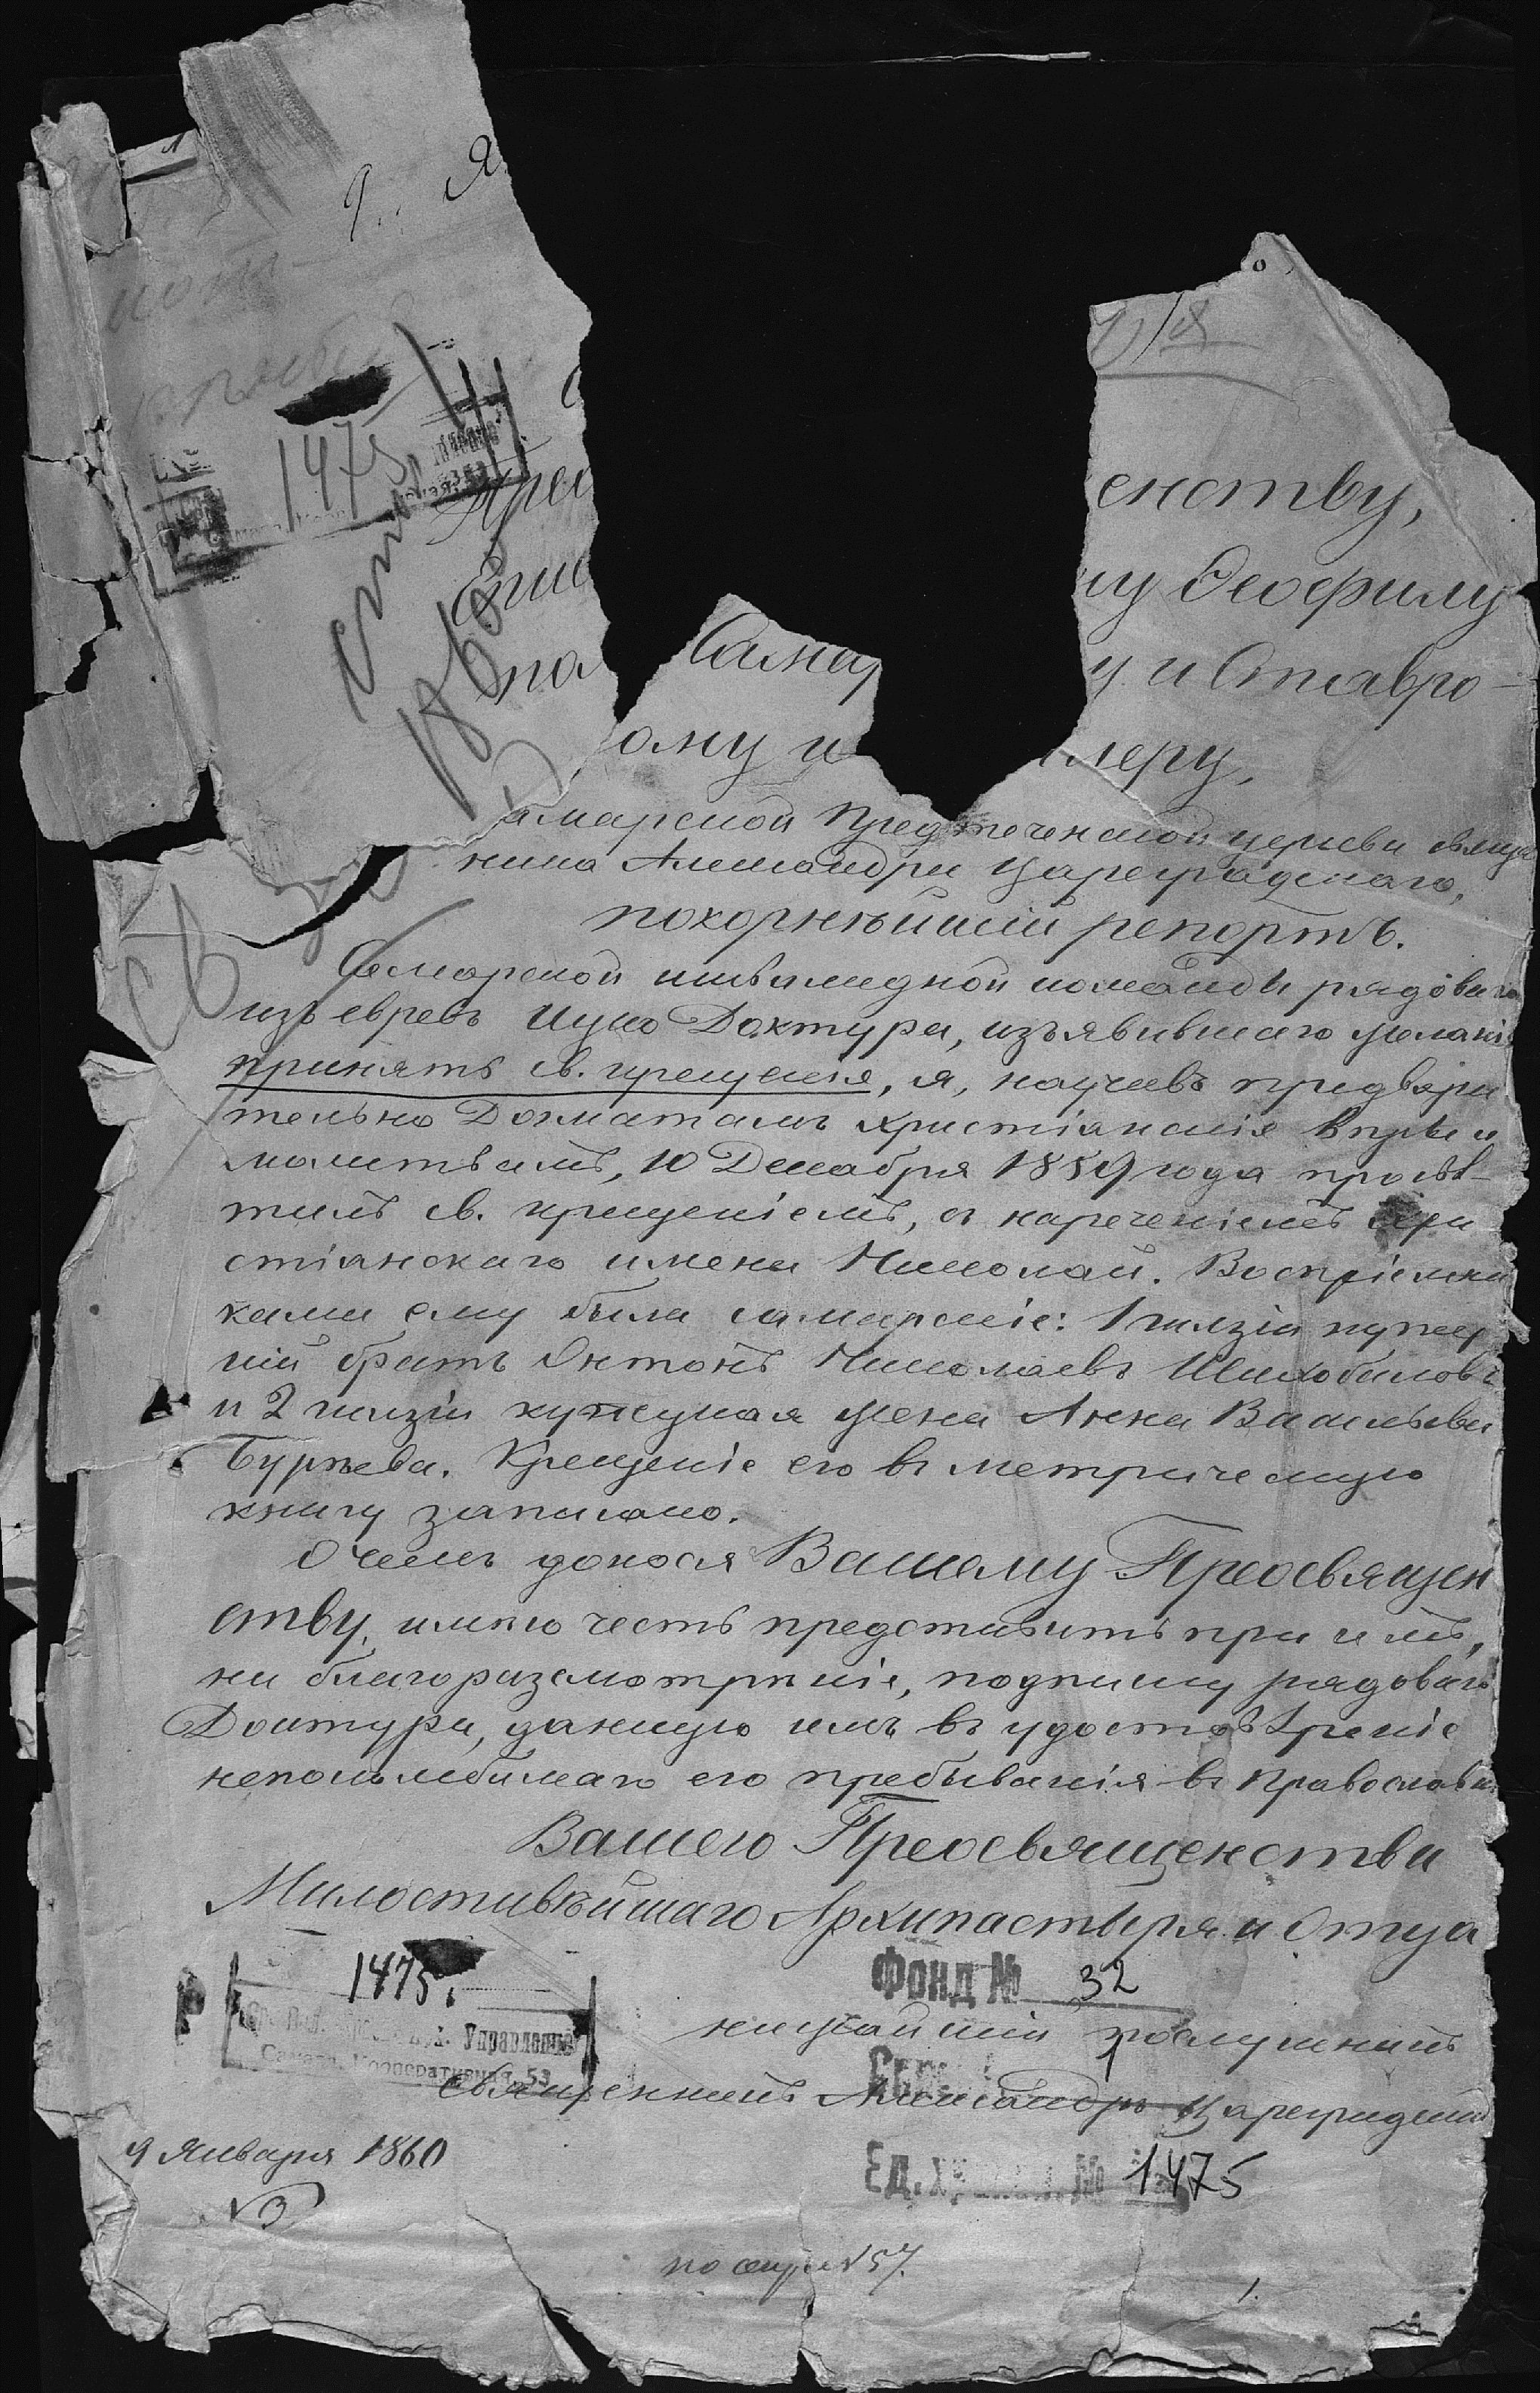 9 Я
1475
Прео енству,
Епис му Ѳеофилу
Самар у и Ставро-
пол ому и леру,
Самарской Предтеченской церкви священ
ника Александра Цареградскаго,
покорнѣйшій репортъ.
Самарской инвалидной команды рядоваго
изъ евреевъ Ицко Доктура, изъявившаго желаніе
принять св. крещеніе, я, научивъ предвари
тельно Догматамъ христіанскія вѣры и
молитвамъ, 10 Декабря 1859 года просвѣ-
тилъ св. крещеніемъ, съ нареченіемъ хри
стіанскаго имени Николай. Воспріемни
ками ему были самарскіе: 1 гильдіи купечес
кій братъ Антонъ Николаевъ Шихобаловъ
и 2 гильдіи купецкая жена Анна Васильева
Бурѣева. Крещеніе его въ метрическую
книгу записано.
О чемъ донося Вашему Преосвящен
ству, имѣю честь представить при семъ,
на благоразсмотрѣніе, подписку рядоваго
Доктура, данную имъ въ удостовѣреніе
непоколебимаго его пребыванія въ Православіи
Вашего Преосвященства
Милостивѣйшаго Архипастыря и Отца
1475.
Фонд № 32
Управление
Кооперативная, 53
нижайшій послушникъ
священникъ Александръ Цареградскій
9 Января 1860
№ 3
Ед. хранен. № 1475
№ 57.
1.